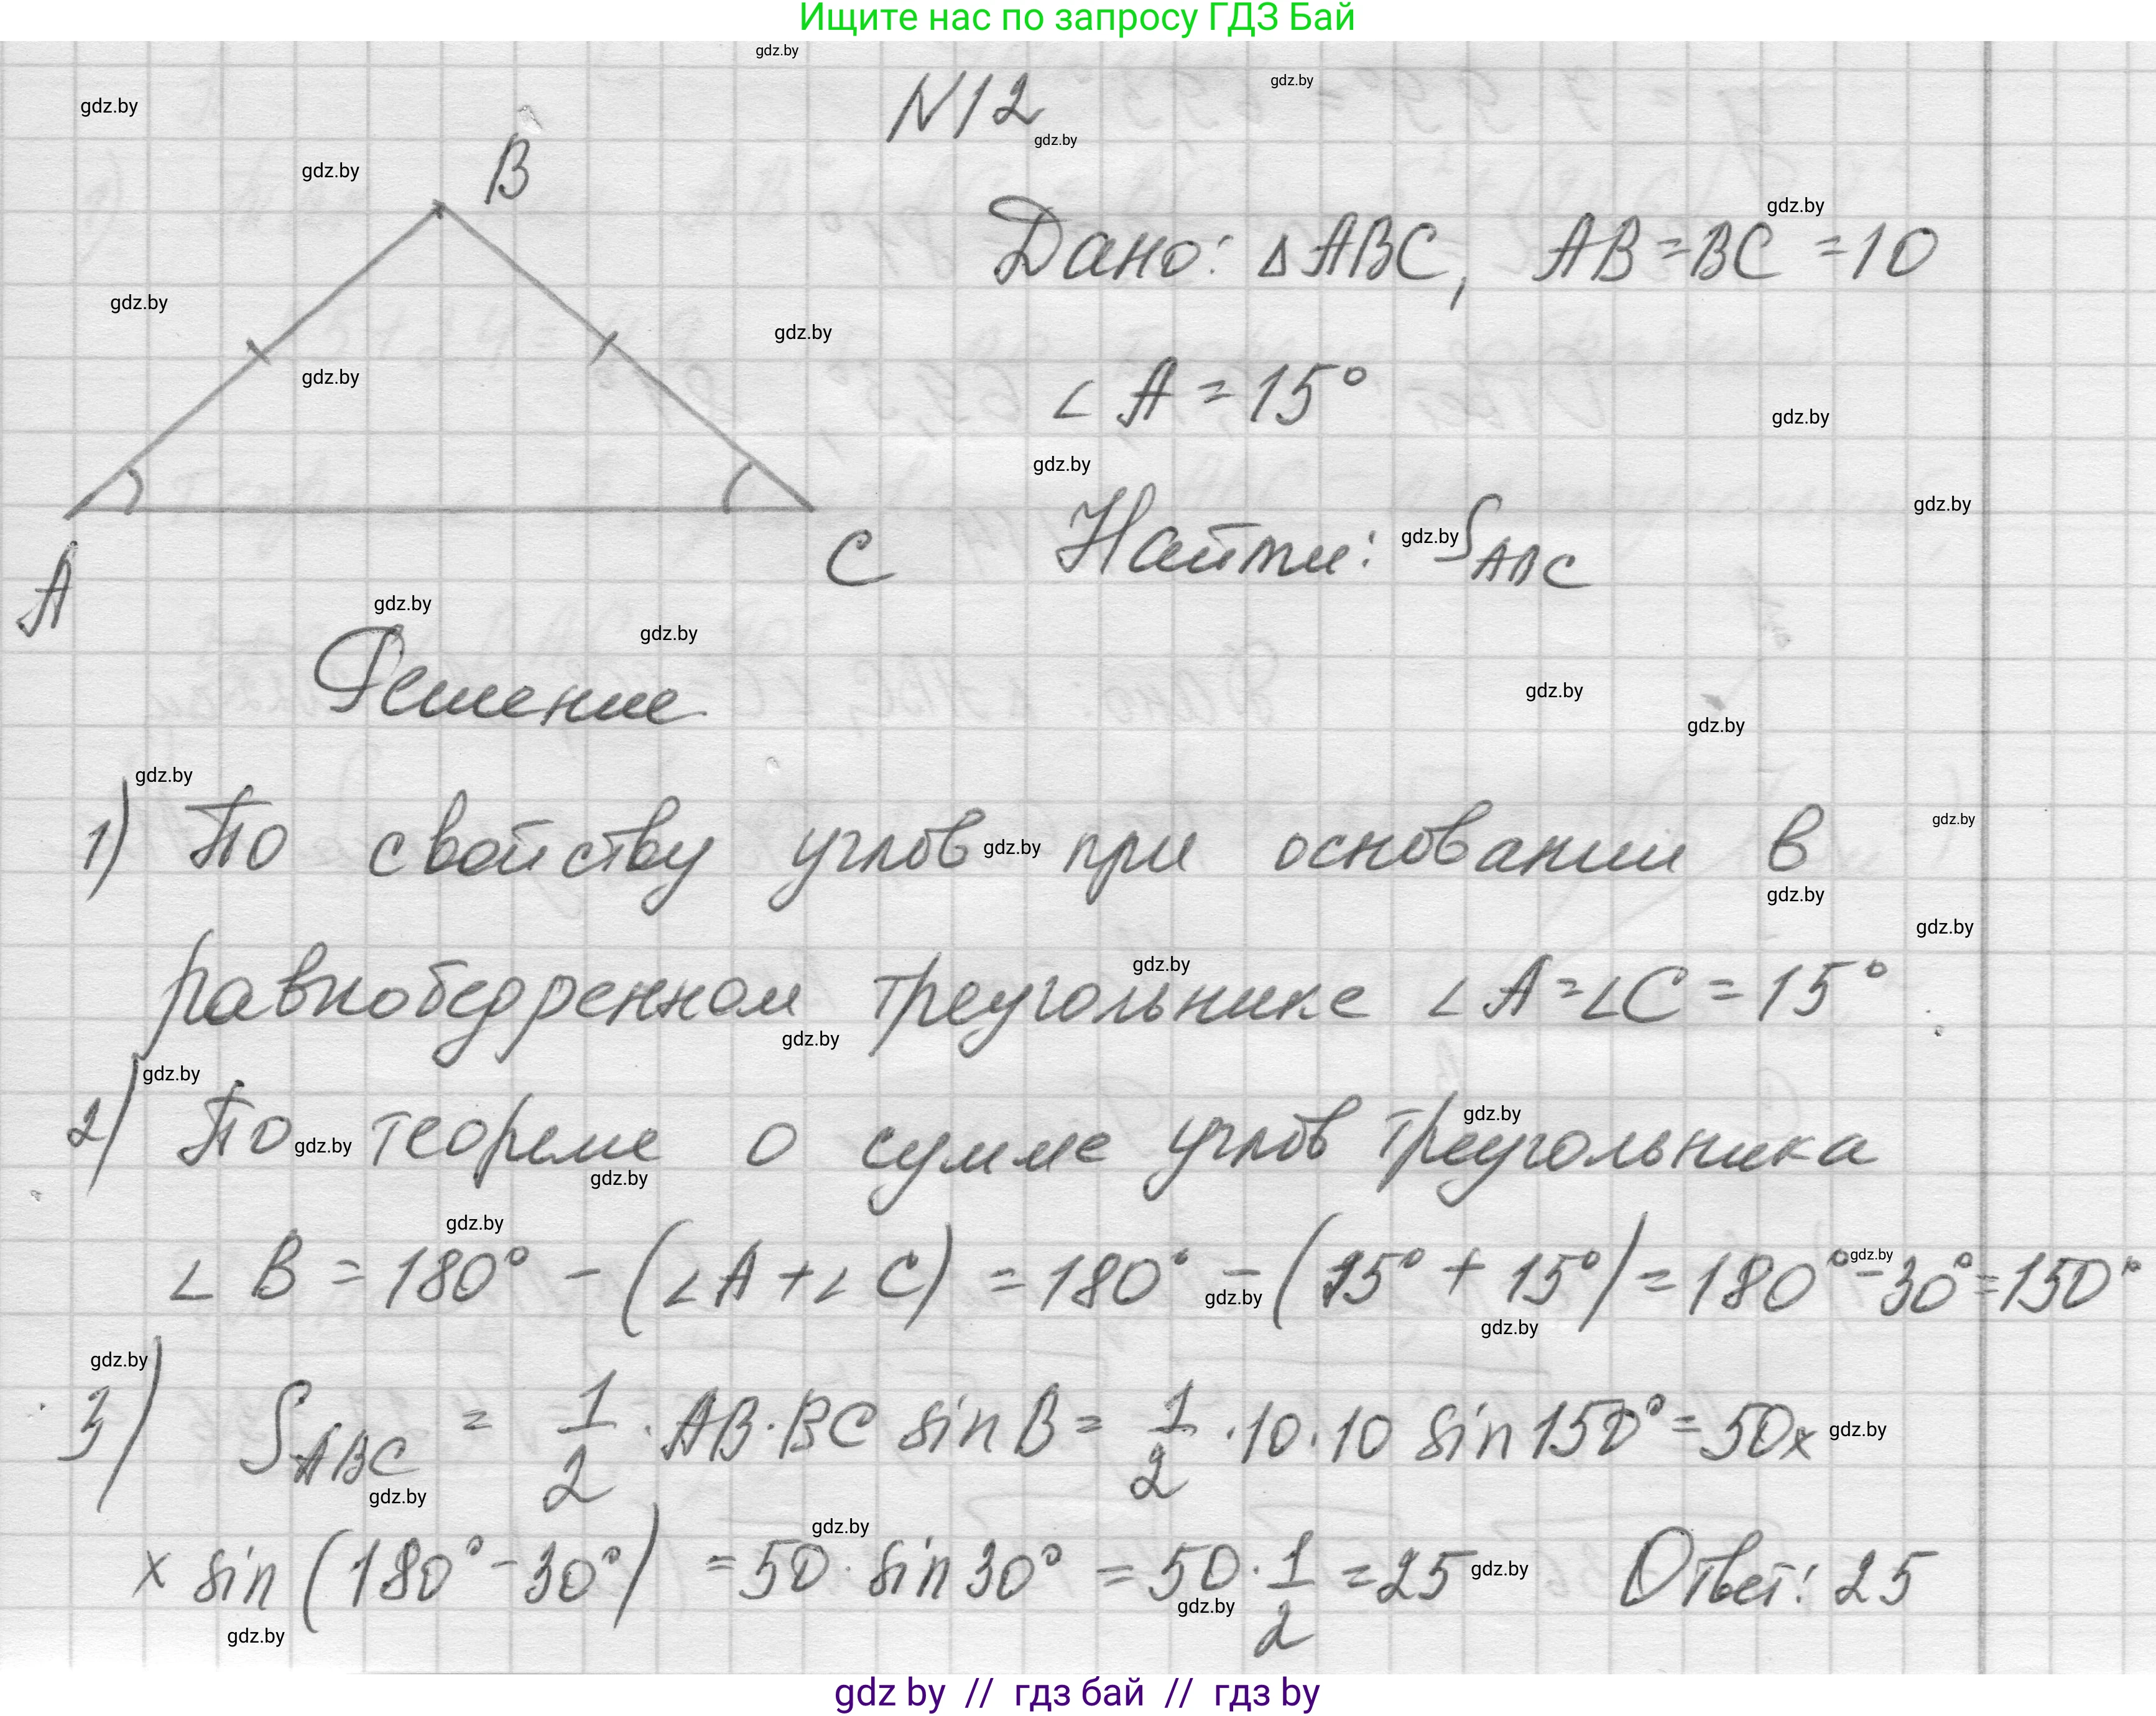 Ищите нас по запросу ГДЗ Бай
N12
B
Дано: ΔABC, AB=BC=10
∠A=15°
A
C
Найти: S_ABC
Решение
1) По свойству углов при основании в
равнобедренном треугольнике ∠A=∠C=15°
2) По теореме о сумме углов треугольника
∠B=180°-(∠A+∠C)=180°-(15°+15°)=180°-30°=150°
3) S_ABC = 1/2·AB·BC sin B = 1/2·10·10 sin 150°=50×
× sin(180°-30°)=50·sin 30°=50·1/2=25 Ответ: 25
gdz by // гдз бай // гдз by